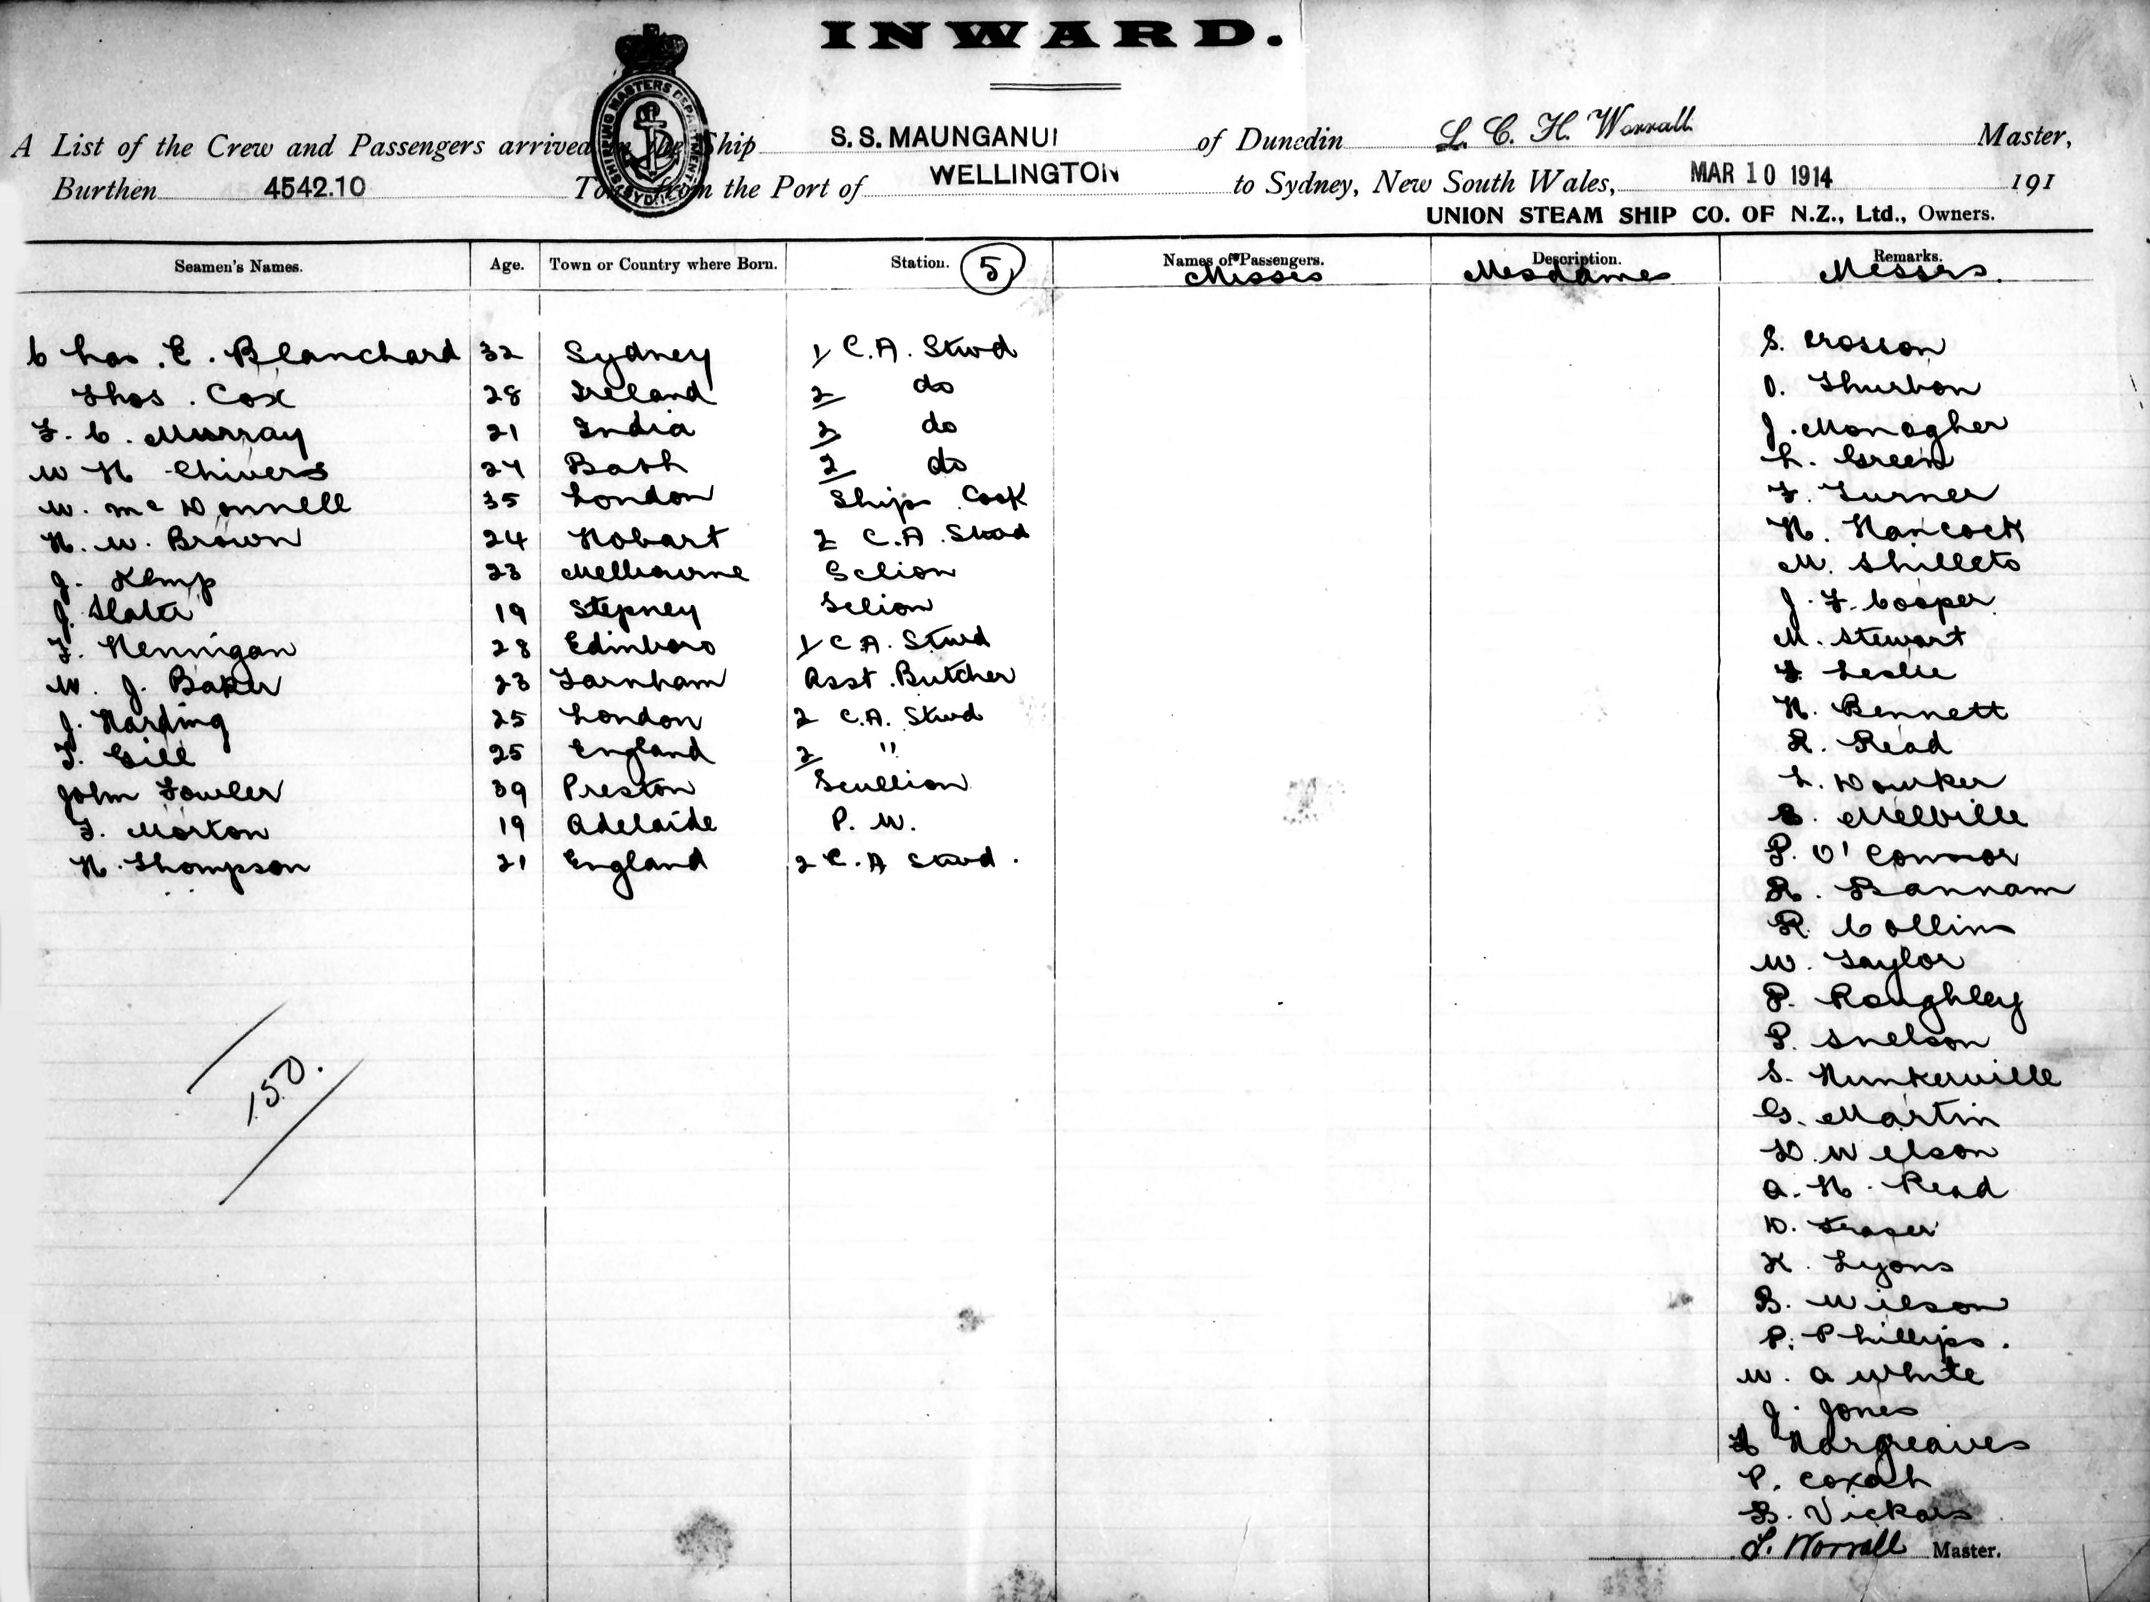 INWARD.
A List of the Crew and Passengers arrived in the Ship S.S. MAUNGANUI of Dunedin L. C. H. Worrall Master,
Burthen 4542.10 Tons from the Port of WELLINGTON to Sydney, New South Wales, MAR 10 1914 191
UNION STEAM SHIP CO. OF N.Z., Ltd., Owners.
SHIPPING MASTERS DEPARTMENT SYDNEY
Seamen's Names. Age. Town or Country where Born. Station. 5 Names of Passengers. Description. Remarks.
Misses Mesdames Messrs.
Chas. E. Blanchard 32 Sydney 1/ C.A. Stwd S. Crosson
Thos. Cox 28 Ireland 2/ do O. Thurbon
F. C. Murray 21 India 2/ do J. Monagher
W H Chivers 24 Bath 2/ do L. Green
W. McDonnell 35 London Ships Cook F. Turner
H. W. Brown 24 Hobart 2 C.A. Stwd H. Hancock
J. Kemp 23 Melbourne Sclion M. Shilleto
J. Slater 19 Stepney Sclion J. F. Cooper
F. Hennigan 28 Edinboro 1/ C A. Stwd M. Stewart
W. J. Baker 23 Farnham Asst. Butcher F. Leslie
J. Harding 25 London 2 C.A. Stwd H. Bennett
T. Gill 25 England 2/ " R. Read
John Fowler 39 Preston Scullion L. Dowker
F. Morton 19 Adelaide P. W. E. Melville
H. Thompson 21 England 2 C. A Stwd. P. O'Connor
R. Bannam
R. Collins
W. Taylor
P. Roughley
P. Snelson
S. Hunkerville
G. Martin
D. Welson
A. H. Read
D. Fraser
K. Lyons
B. Wilson
P. Phillips.
W. A White
J. Jones
Hargreaves
P. Coxah
B. Vickars
150.
L. Worrall Master.